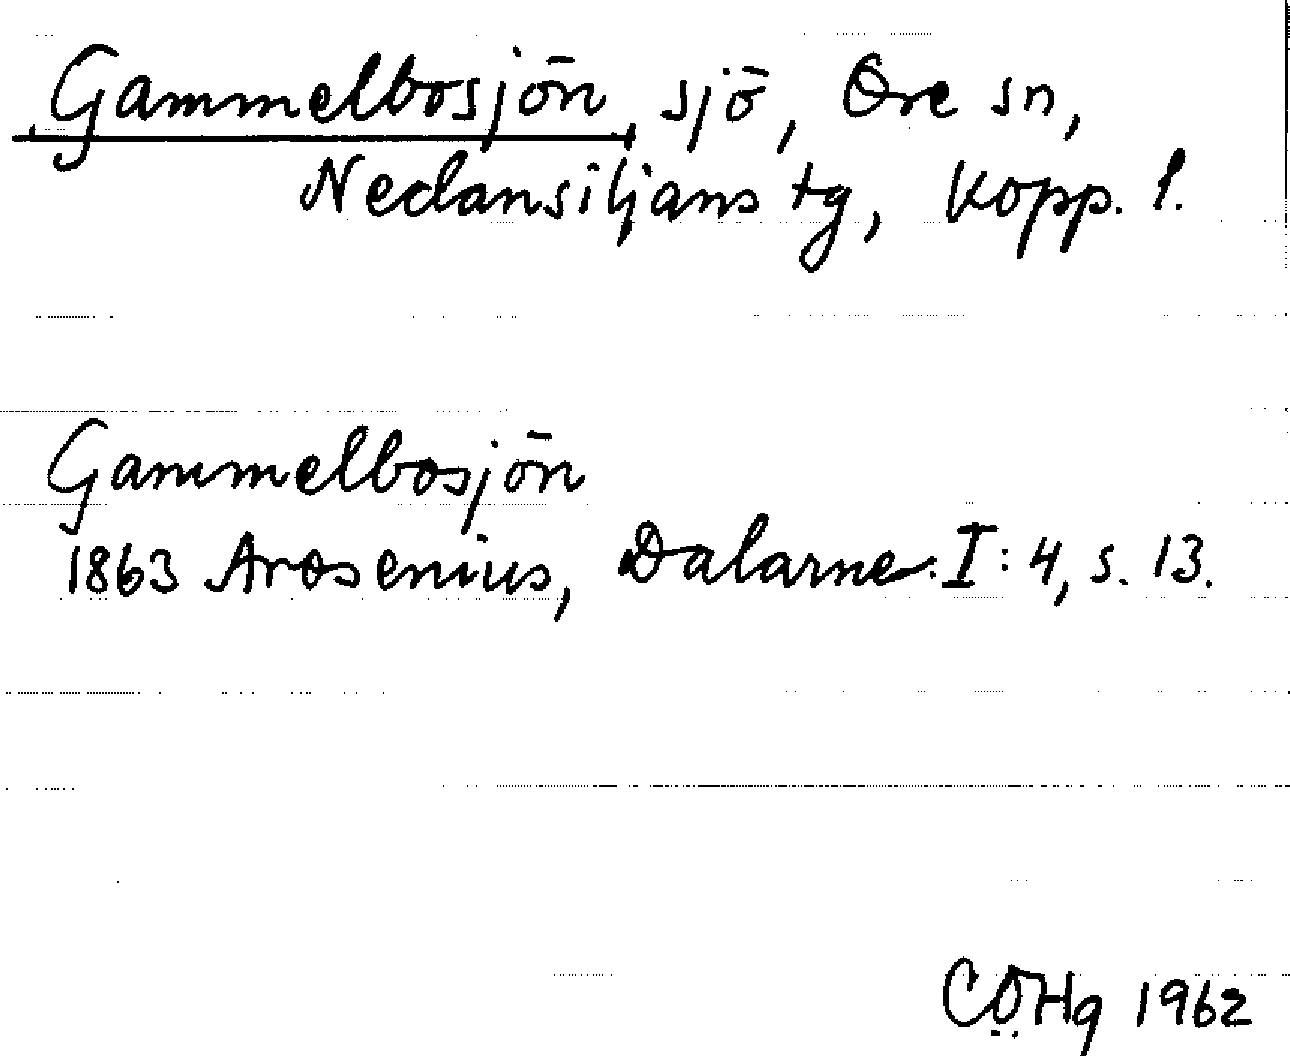 Gammelbosjön, sjö, Ore sn,
Nedansiljans tg, Kopp. l.
Gammelbosjön
1863 Arosenius, Dalarne. I: 4, s. 13.
CÖHg 1962